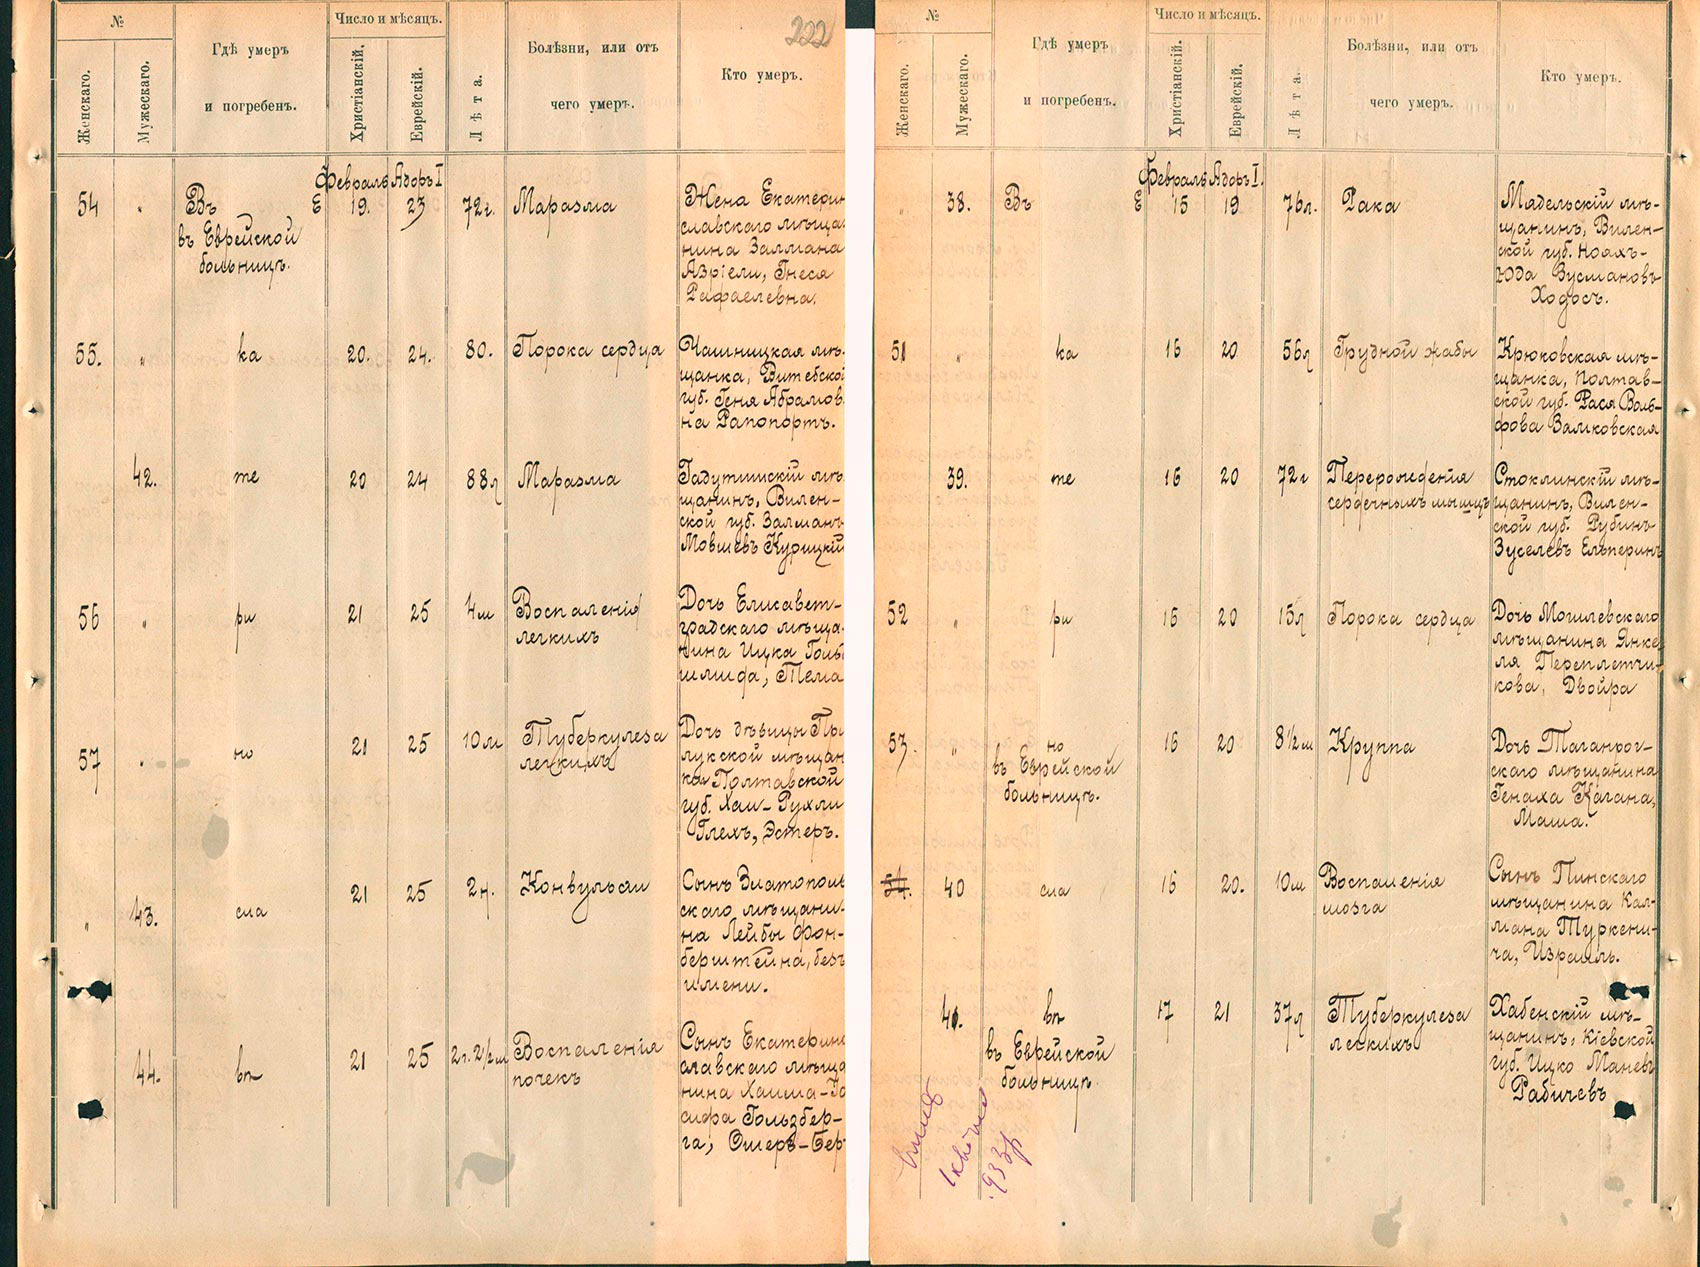 №
Число и мѣсяцъ.
222
Женскаго.
Мужескаго.
Гдѣ умеръ
и погребенъ.
Христіанскій.
Еврейскій.
Лѣта.
Болѣзни, или отъ
чего умеръ.
Кто умеръ.
Февраль Адоръ I
54 " Въ Е 19. 23 72 г. Маразма
въ Еврейской
больницѣ.
Жена Екатерин
славскаго мѣща
нина Залмана
Азріели, Гнеся
Рафаелевна.
55. " ка 20. 24. 80. Порока сердца
Чашницкая мѣ-
щанка, Витебской
губ. Геня Абрамов-
на Рапопортъ.
42. те 20 24 88 л Маразма
Гадутишскій мѣ
щанинъ, Вилен-
ской губ. Залманъ
Мовшевъ Курицкій
56 " ри 21 25 4 м Воспаленія
легкихъ
Дочь Елисавет-
градскаго мѣща-
нина Ицка
шлифа, Тема
57 " но 21 25 10 м Туберкулеза
легкихъ
Дочь дѣвицы При
лукской мѣщан
ки Полтавской
губ. Хаи-Рухли
Глехъ, Эстеръ.
" 43. сла 21 25 2 н. Конвульсіи
Сынъ Златополь
скаго мѣщани-
на Лейбы Фон-
берштейна, безъ
имени.
44. вѣ 21 25 2 г. 2½ м Воспаленія
почекъ
Сынъ Екатерино
славскаго мѣща
нина Хаима-Іо
сифа Гользбер-
га, Ошеръ-Бер
№
Число и мѣсяцъ.
Женскаго.
Мужескаго.
Гдѣ умеръ
и погребенъ.
Христіанскій.
Еврейскій.
Лѣта.
Болѣзни, или отъ
чего умеръ.
Кто умеръ.
Февраль Адоръ I.
" 38. Въ Е 15 19 76 л. Рака
Мядельскій мѣ-
щанинъ, Вилен-
ской губ. Ноахъ-
Юда Зусмановъ
Ходосъ.
51 " ка 16 20 56 л Грудной жабы
Крюковская мѣ-
щанка, Полтав-
ской губ. Рася Воль-
фова Замковская
39. те 16 20 72 г Перерожденія
сердечныхъ мышцъ
Стоклинскій мѣ-
щанинъ, Вилен-
ской губ. Рубинъ
Зуселевъ Ельперинъ
52 " ри 15 20 15 л Порока сердца
Дочь Могилевскаго
мѣщанина Янке-
ля Переплетчи-
кова, Двойра
53. " но 16 20 8½ м Круппа
въ Еврейской
больницѣ.
Дочь Таганрог-
скаго мѣщанина
Генаха Кагана,
Маша.
54. 40 сла 16 20. 10 м Воспаленія
мозга
Сынъ Пинскаго
мѣщанина Кал-
мана Туркени-
ча, Израиль.
41. вѣ 17 21 37 л Туберкулеза
легкихъ
въ Еврейской
больницѣ.
Хабенскій мѣ-
щанинъ, Кіевской
губ. Ицко Маневъ
Рабичевъ